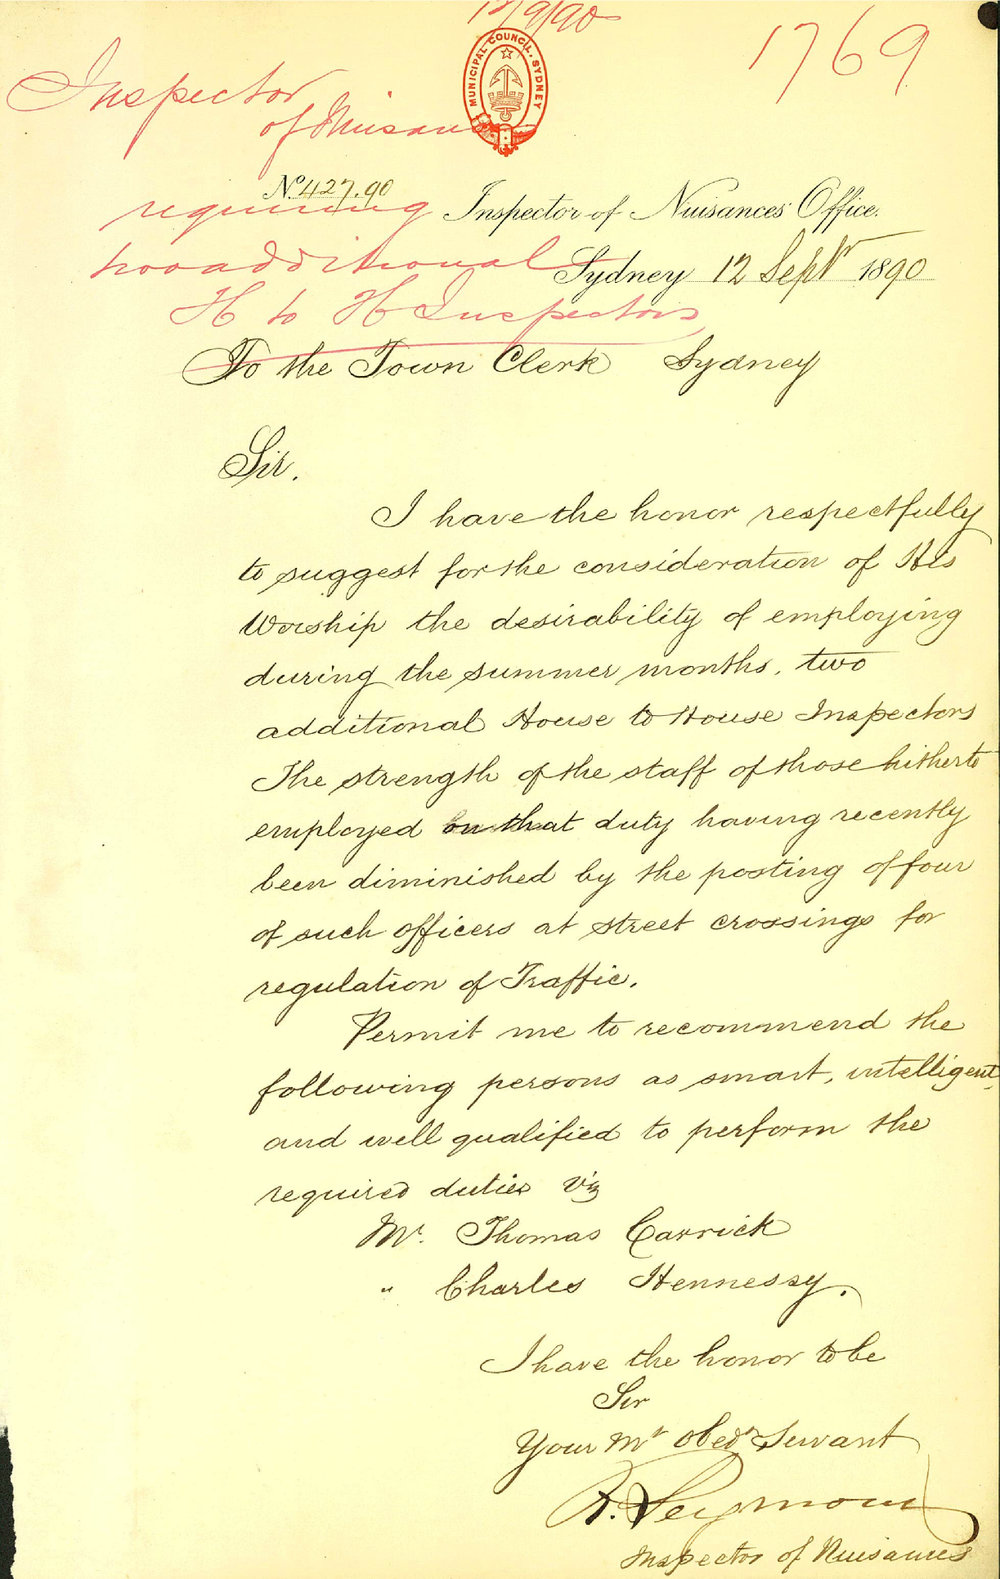 12/9/90
1769
MUNICIPAL COUNCIL. SYDNEY
Inspector
of Nuisances
requiring
two additional
H to H Inspectors
No. 427.90
Inspector of Nuisances Office.
Sydney 12 Septr 1890
To the Town Clerk Sydney
Sir.
I have the honor respectfully
to suggest for the consideration of His
Worship the desirability of employing
during the summer months, two
additional House to House Inspectors
The strength of the staff of those hitherto
employed on that duty having recently
been diminished by the posting of four
of such officers at street crossings for
regulation of Traffic.
Permit me to recommend the
following persons as smart, intelligent,
and well qualified to perform the
required duties viz
Mr. Thomas Carrick
" Charles Hennessy.
I have the honor to be
Sir
Your Mt Obedt Servant
R. Seymour
Inspector of Nuisances